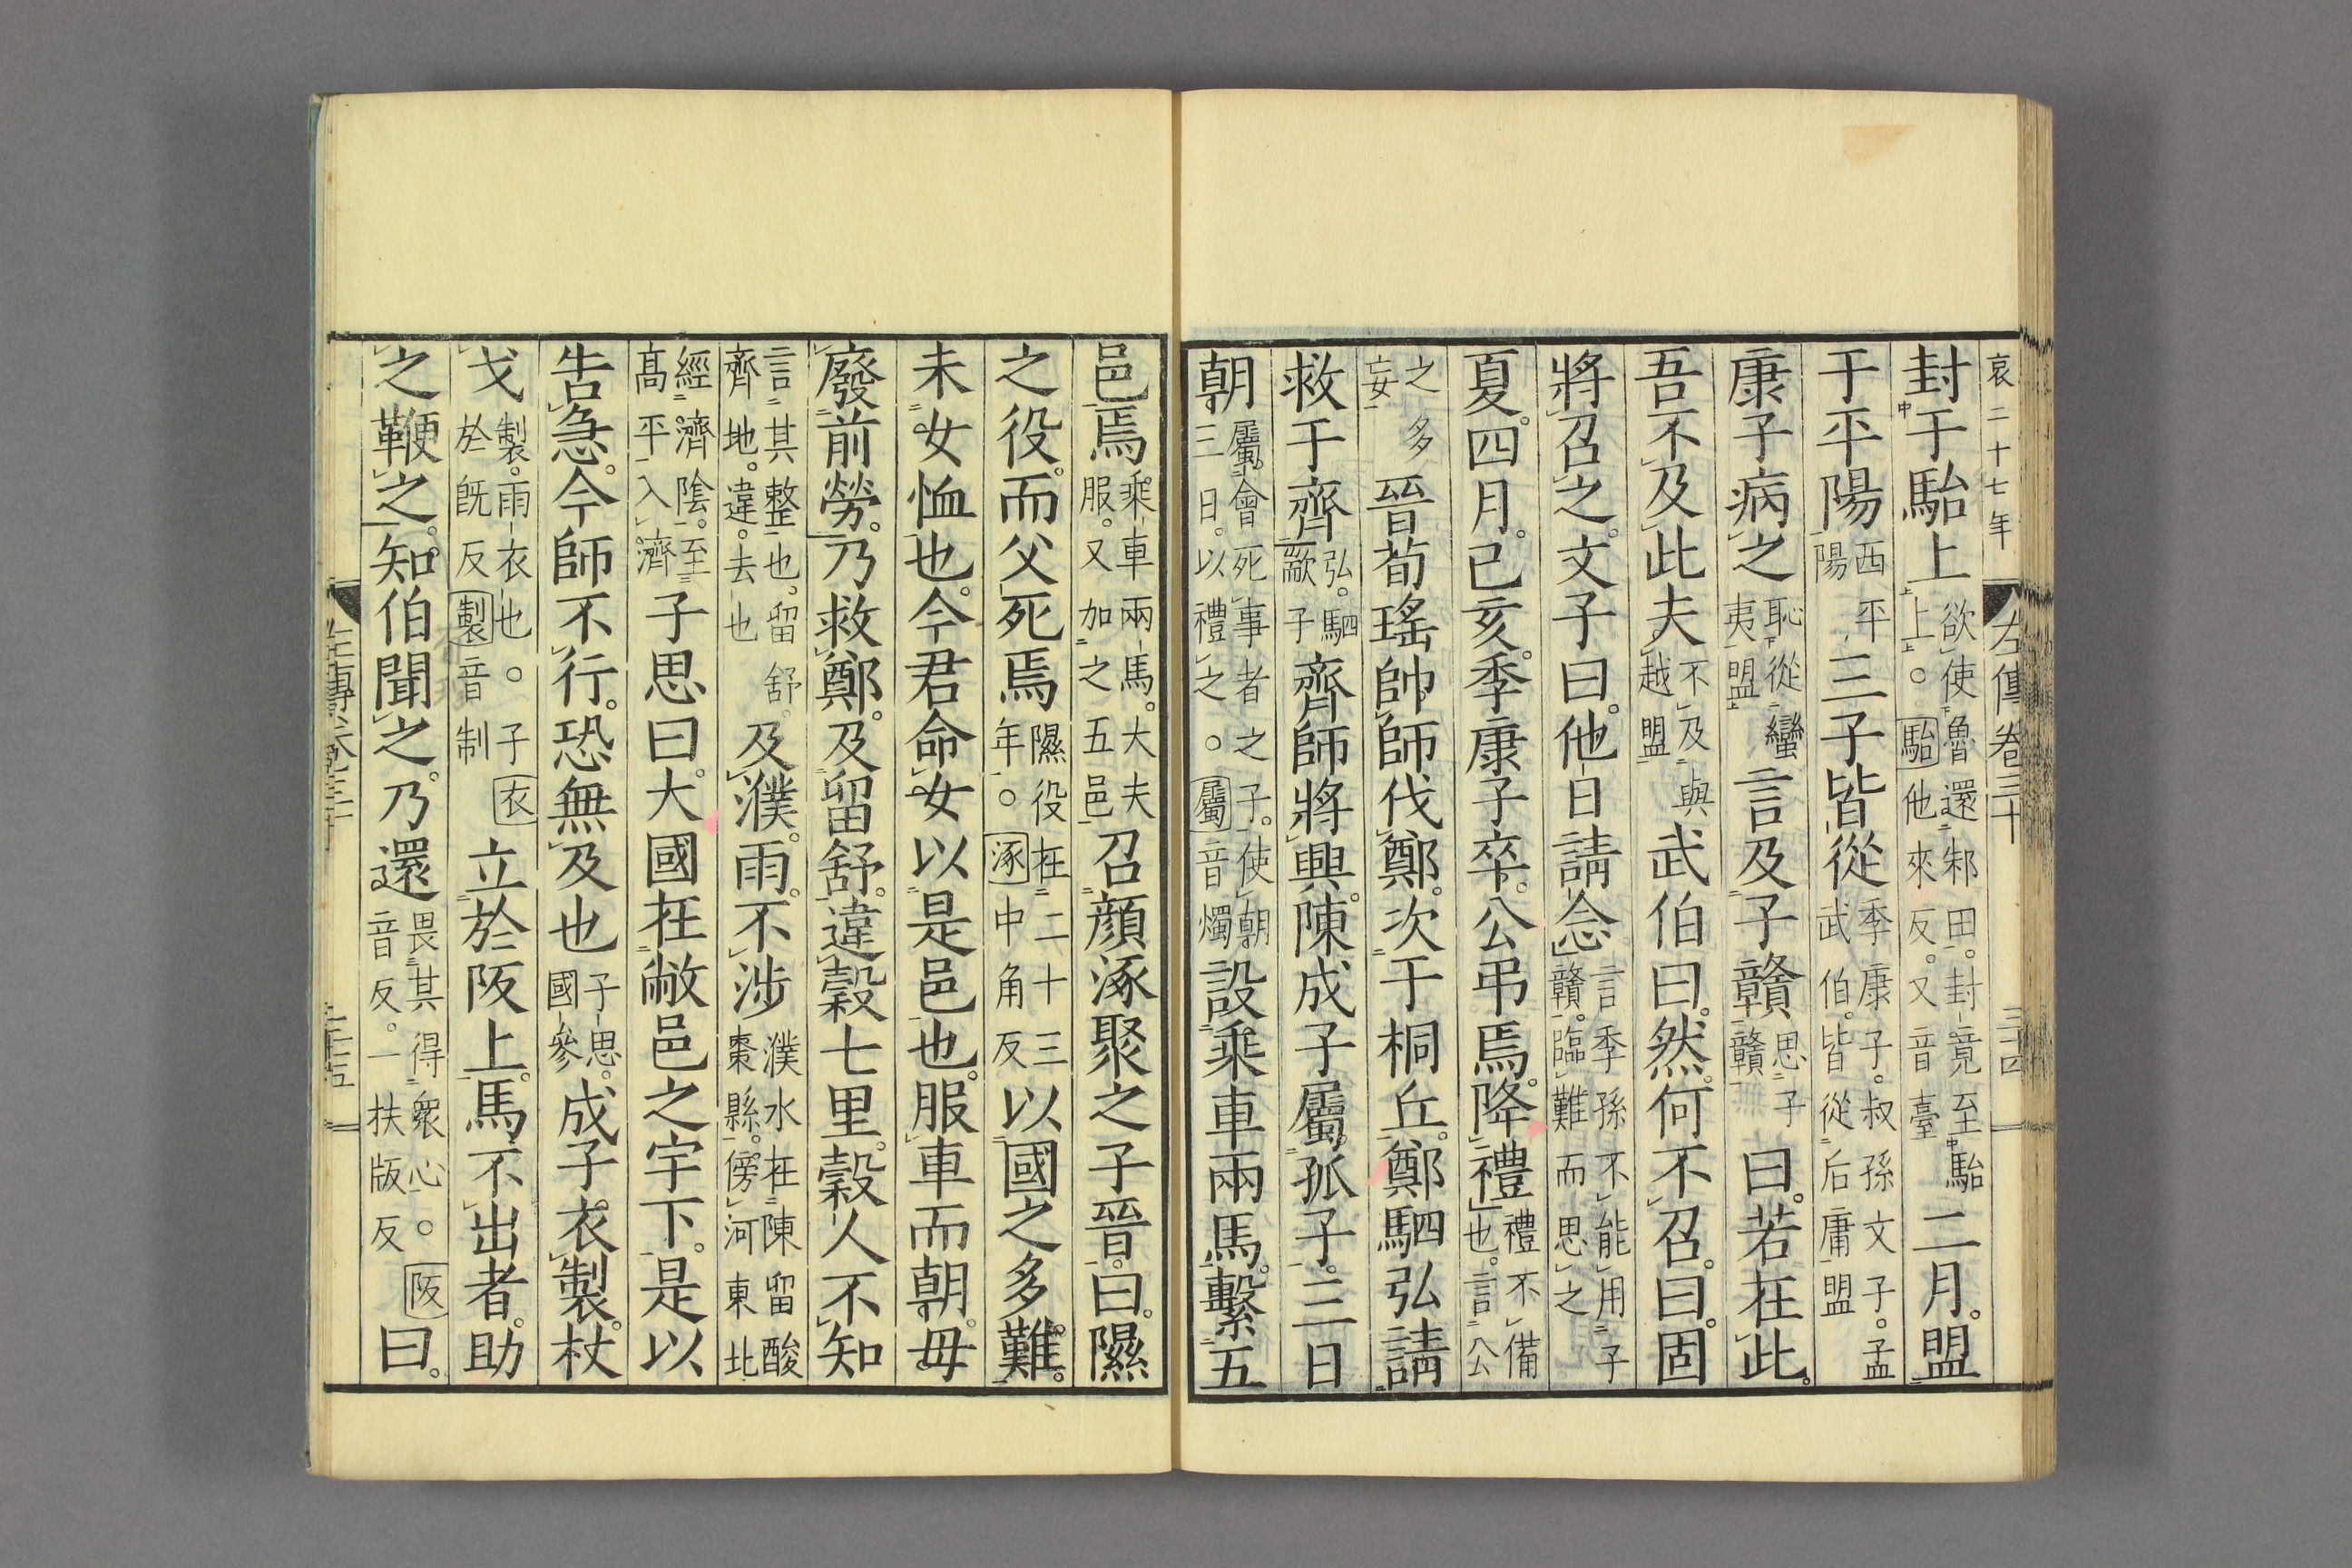 哀二十七年 左傳卷三十 三十四
封于駘上欲使魯還邾田。封竟至駘上。○駘他來反。又音臺二月。盟
于平陽西平陽三子皆從季康子。叔孫文子。孟武伯。皆從后庸盟
康子病之恥從蠻夷盟言及子贛思子贛曰。若在此。
吾不及此夫不及與越盟武伯曰。然。何不召。曰。固
將召之。文子曰。他日請念言季孫不能用子贛。臨難而思之
夏。四月。己亥。季康子卒。公弔焉。降禮禮不備也。言公
之多妄晉荀瑤帥師伐鄭。次于桐丘。鄭駟弘請
救于齊弘。駟歂子齊師將興。陳成子屬孤子。三日
朝。屬會死事者之子。使朝三日。以禮之。○屬音燭設乘車兩馬。繫五
邑焉乘車兩馬。大夫服。又加之五邑召顏涿聚之子晉。曰。隰
之役。而父死焉隰役在二十三年。○涿中角反以國之多難。
未女恤也。今君命女以是邑也。服車而朝。毋
廢前勞。乃救鄭。及留舒。違穀七里。穀人不知
言其整也。留舒。齊地。違。去也及濮。雨。不涉濮水在陳留酸棗縣。傍河東北
經濟陰。至高平入濟子思曰。大國在敝邑之宇下。是以
告急。今師不行。恐無及也子思。國參成子衣製。杖
戈製。雨衣也。○子衣於既反製音制立於阪上。馬不出者。助
之鞭之。知伯聞之。乃還畏其得衆心。○阪音反。一扶版反曰。